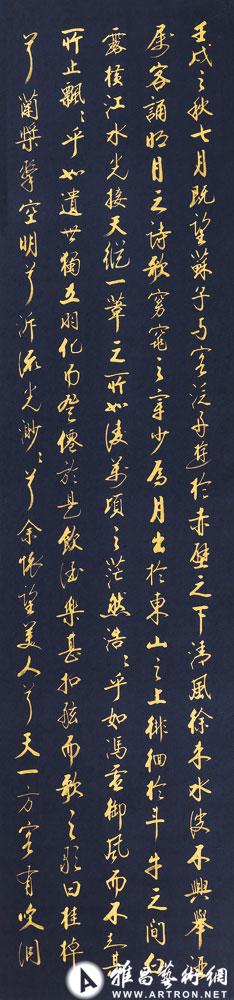 壬戌之秋七月既望蘇子与客泛舟遊於赤壁之下清風徐来水波不興舉酒
属客誦明月之詩歌窈窕之章少焉月出於東山之上徘徊於斗牛之间白
露横江水光接天縱一葦之所如凌萬頃之茫然浩〻乎如馮虚御風而不知其
所止飄〻乎如遺世獨立羽化而登僊於是飲酒樂甚扣舷而歌之歌曰桂棹
兮蘭槳擊空明兮泝流光渺〻兮余懷望美人兮天一方客有吹洞
雅昌藝術網
WWW.ARTRON.NET